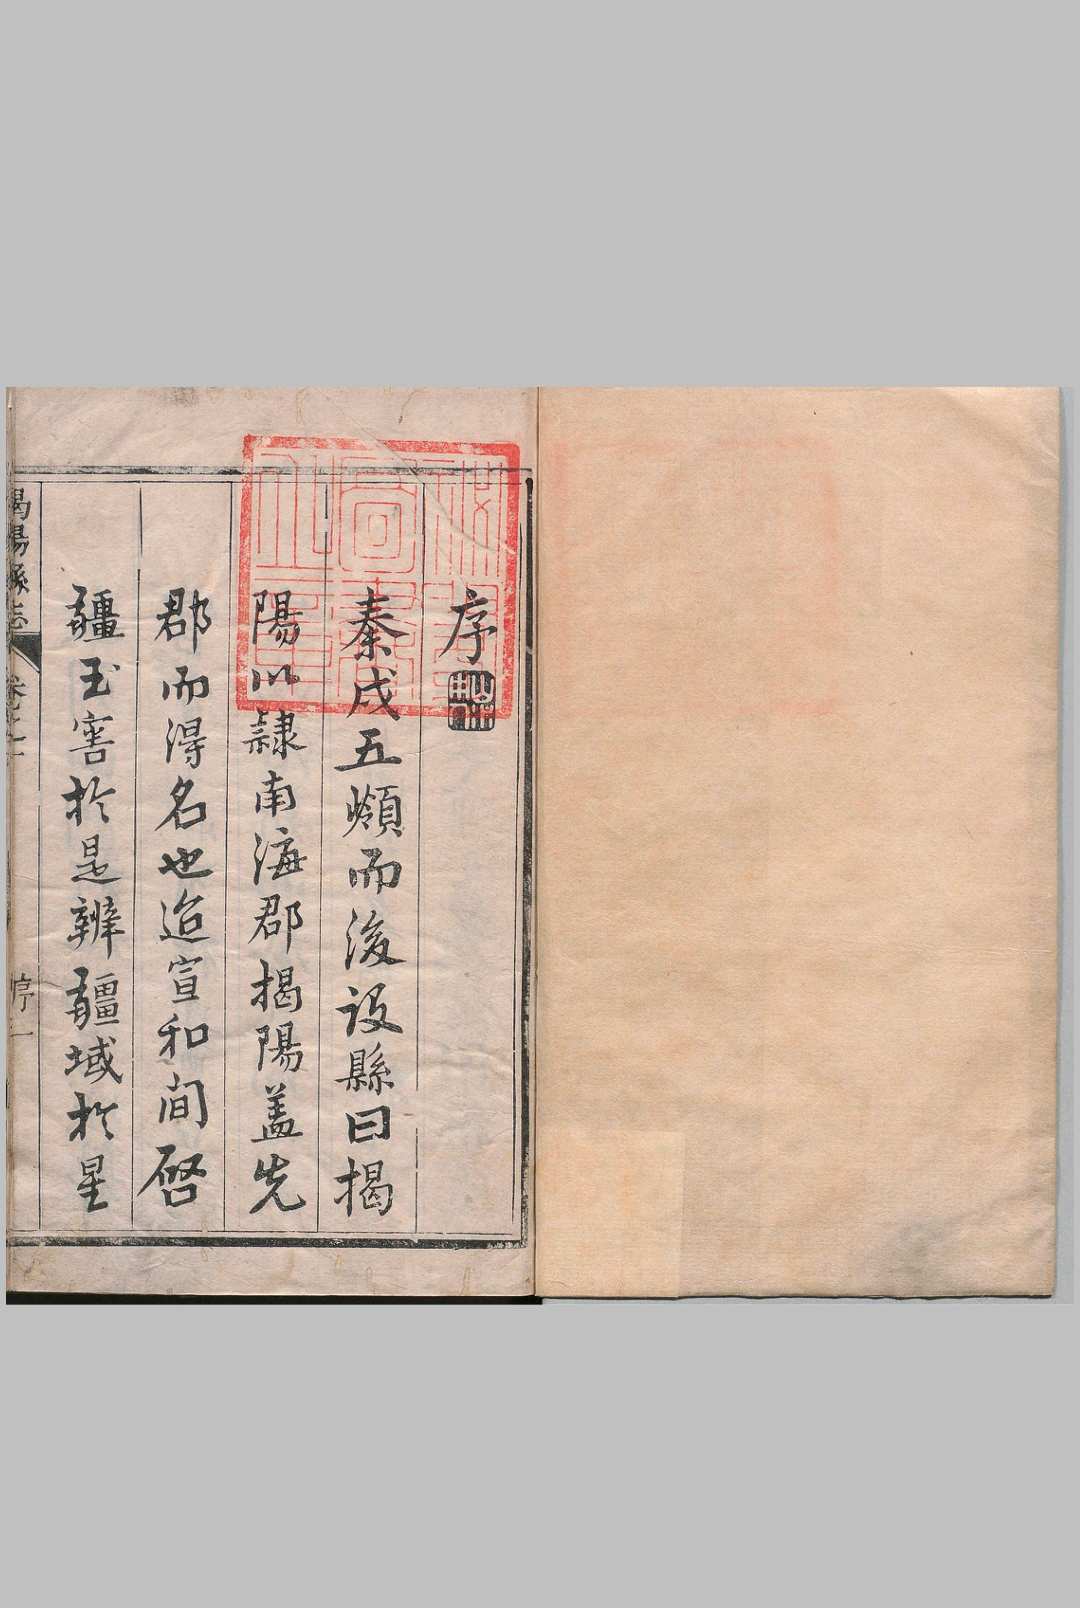 序
秦戍五嶺而後设縣曰揭
陽以隷南海郡揭陽盖先
郡而淂名也迨宣和间啓
疆玉窖扵是辨疆域扵星
揭陽縣志
卷之一
序一